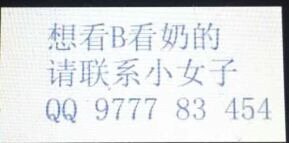 想看B看奶的
请联系小女子
QQ 9777 83 454